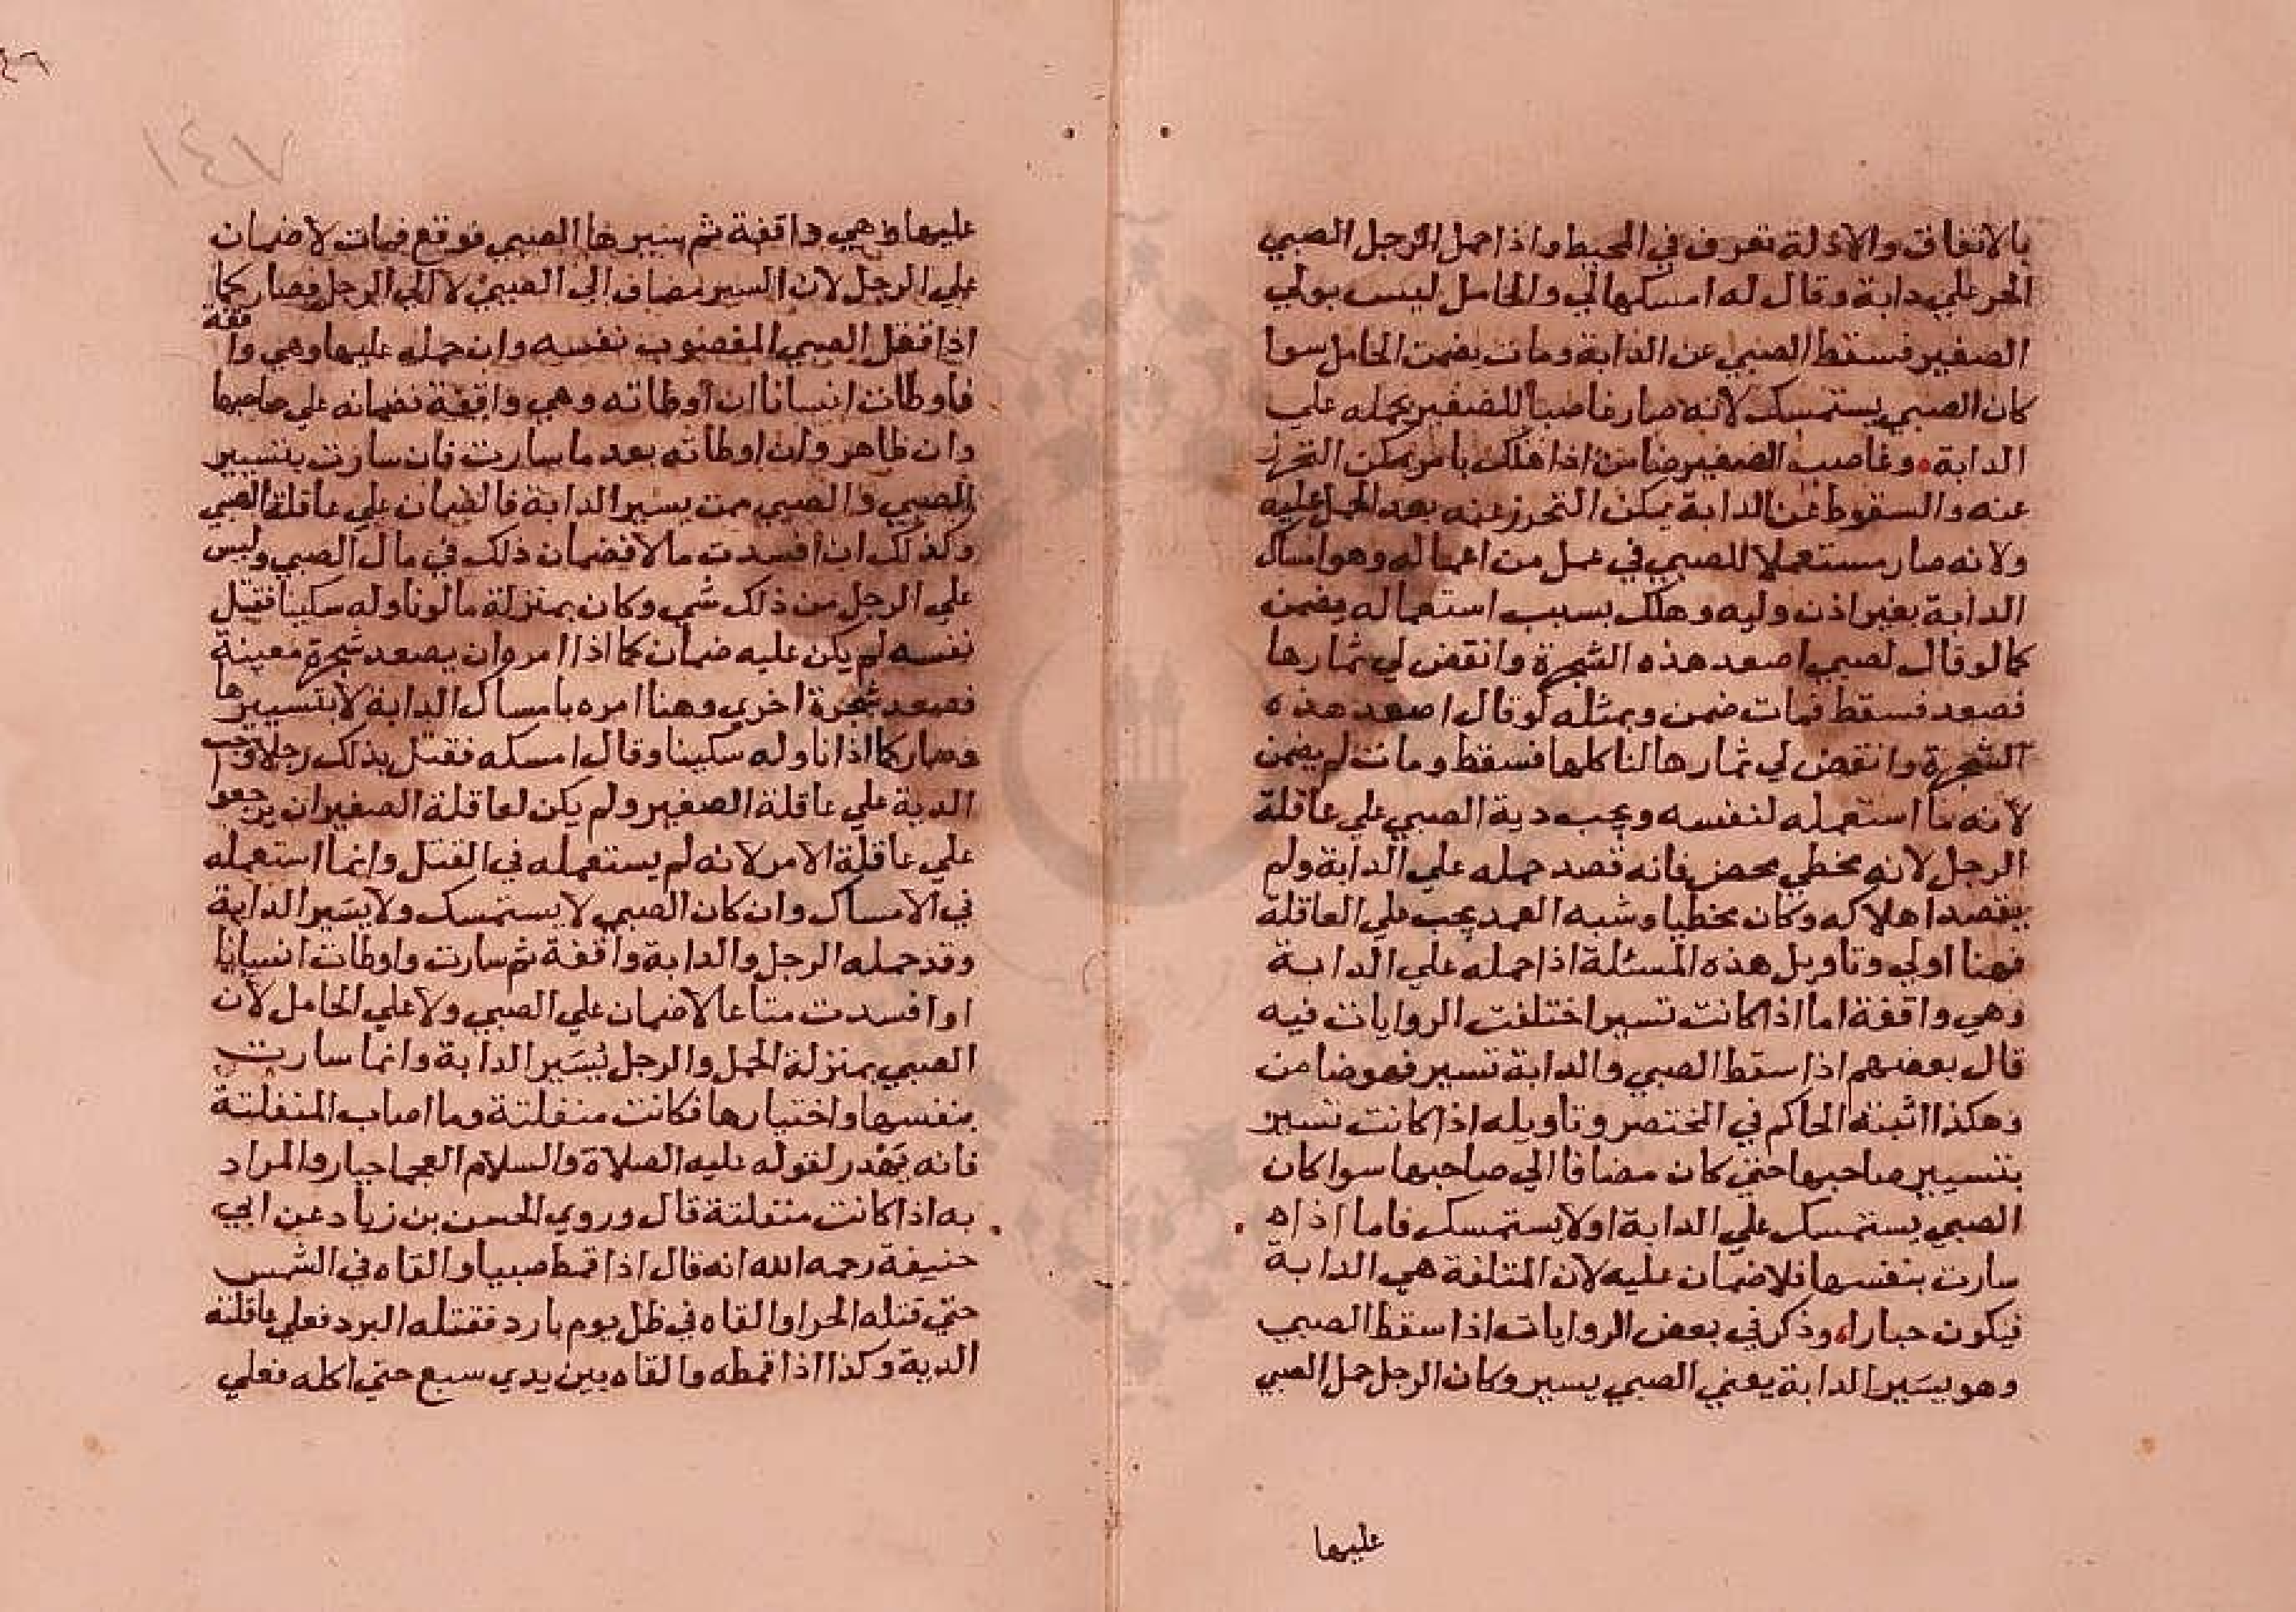 بالاتفاق والادلة تعرف في المحيط واذا حمل الرجل الصبي
الحر علي دابة وقال له امسكها لي والحامل ليس بولي
الصغير فسقط الصبي عن الدابة ومات يضمن الحامل سوا
كان الصبي يستمسك لانه صار غاصبا للصغير بحمله علي
الدابة وغاصب الصغير ضامن اذا هلك بامر يمكن التحرز
عنه والسقوط عن الدابة يمكن التحرز عنه بعد الحمل عليه
ولانه صار مستعملا للصبي في عمل من اعماله وهو امساك
الدابة بغير اذن وليه وهلك بسبب استعماله يضمن
كما لو قال لصبي اصعد هذه الشجرة وانقض لي ثمارها
فصعد فسقط فمات ضمن وبمثله لو قال اصعد هذه
الشجرة وانقض لي ثمارها لناكلها فسقط ومات لم يضمن
لانه ما استعمله لنفسه ويجب دية الصبي علي عاقلة
الرجل لانه مخطي محض فانه قصد حمله علي الدابة ولم
يقصد اهلاكه وكان مخطيا وشبه العمد يجب علي العاقلة
فهنا اولي وتاويل هذه المسئلة اذا حمله علي الدابة
وهي واقفة اما اذا كانت تسير اختلفت الروايات فيه
قال بعضهم اذا سقط الصبي والدابة تسير فهو ضامن
وهكذا اثبته الحاكم في المختصر وتاويله اذا كانت تسير
بتسيير صاحبها حتي كان مضافا الي صاحبها سوا كان
الصبي يستمسك علي الدابة او لا يستمسك فاما اذا ه
سارت بنفسها فلا ضمان عليه لان المتلفة هي الدابة
فيكون جبارا وذكر في بعض الروايات اذا سقط الصبي
وهو يسير الدابة يعني الصبي يسير وكان الرجل حمل الصبي
عليها
١٤٧
عليها وهي واقفة ثم سيرها الصبي فوقع فمات لا ضمان
علي الرجل لان السير مضاف الي الصبي لا الي الرجل فصار كما
اذا قتل الصبي المغصوب نفسه وان حمله عليها وهي واقفة
فاوطات انسانا ان اوطاته وهي واقفة فضمانه علي صاحبها
وان ظاهر وان اوطاته بعد ما سارت فان سارت بتسيير
الصبي والصبي ممن يسير الدابة فالضمان علي عاقلة الصبي
وكذلك ان افسدت مالا فضمان ذلك في مال الصبي وليس
علي الرجل من ذلك شي وكان بمنزلة ما لو ناوله سكينا فقتل
نفسه لم يكن عليه ضمان كما اذا امر وان يصعد شجرة معينة
فصعد شجرة اخري وهنا امره بامساك الدابة لا بتسييرها
وصار كما اذا ناوله سكينا وقال امسكه فقتل بذلك رجلا وجب
الدية علي عاقلة الصغير ولم يكن لعاقلة الصغير ان يرجعوا
علي عاقلة الامر لانه لم يستعمله في القتل وانما استعمله
في الامساك وان كان الصبي لا يستمسك ولا يسير الدابة
وقد حمله الرجل والدابة واقفة ثم سارت واوطات انسانا
او افسدت متاعا لا ضمان علي الصبي ولا علي الحامل لان
الصبي بمنزلة الحمل والرجل يسير الدابة وانما سارت
بنفسها واختيارها فكانت منفلتة وما اصاب المنفلتة
فانه يهدر لقوله عليه الصلاة والسلام العجما جبار والمراد
به اذا كانت منفلتة قال وروي الحسن بن زياد عن ابي
حنيفة رحمه الله انه قال اذا قمط صبيا والقاه في الشمس
حتي قتله الحر او القاه في ظل يوم بارد فقتله البرد فعلي عاقلته
الدية وكذا اذا قمطه والقاه بين يدي سبع حتي اكله فعلي